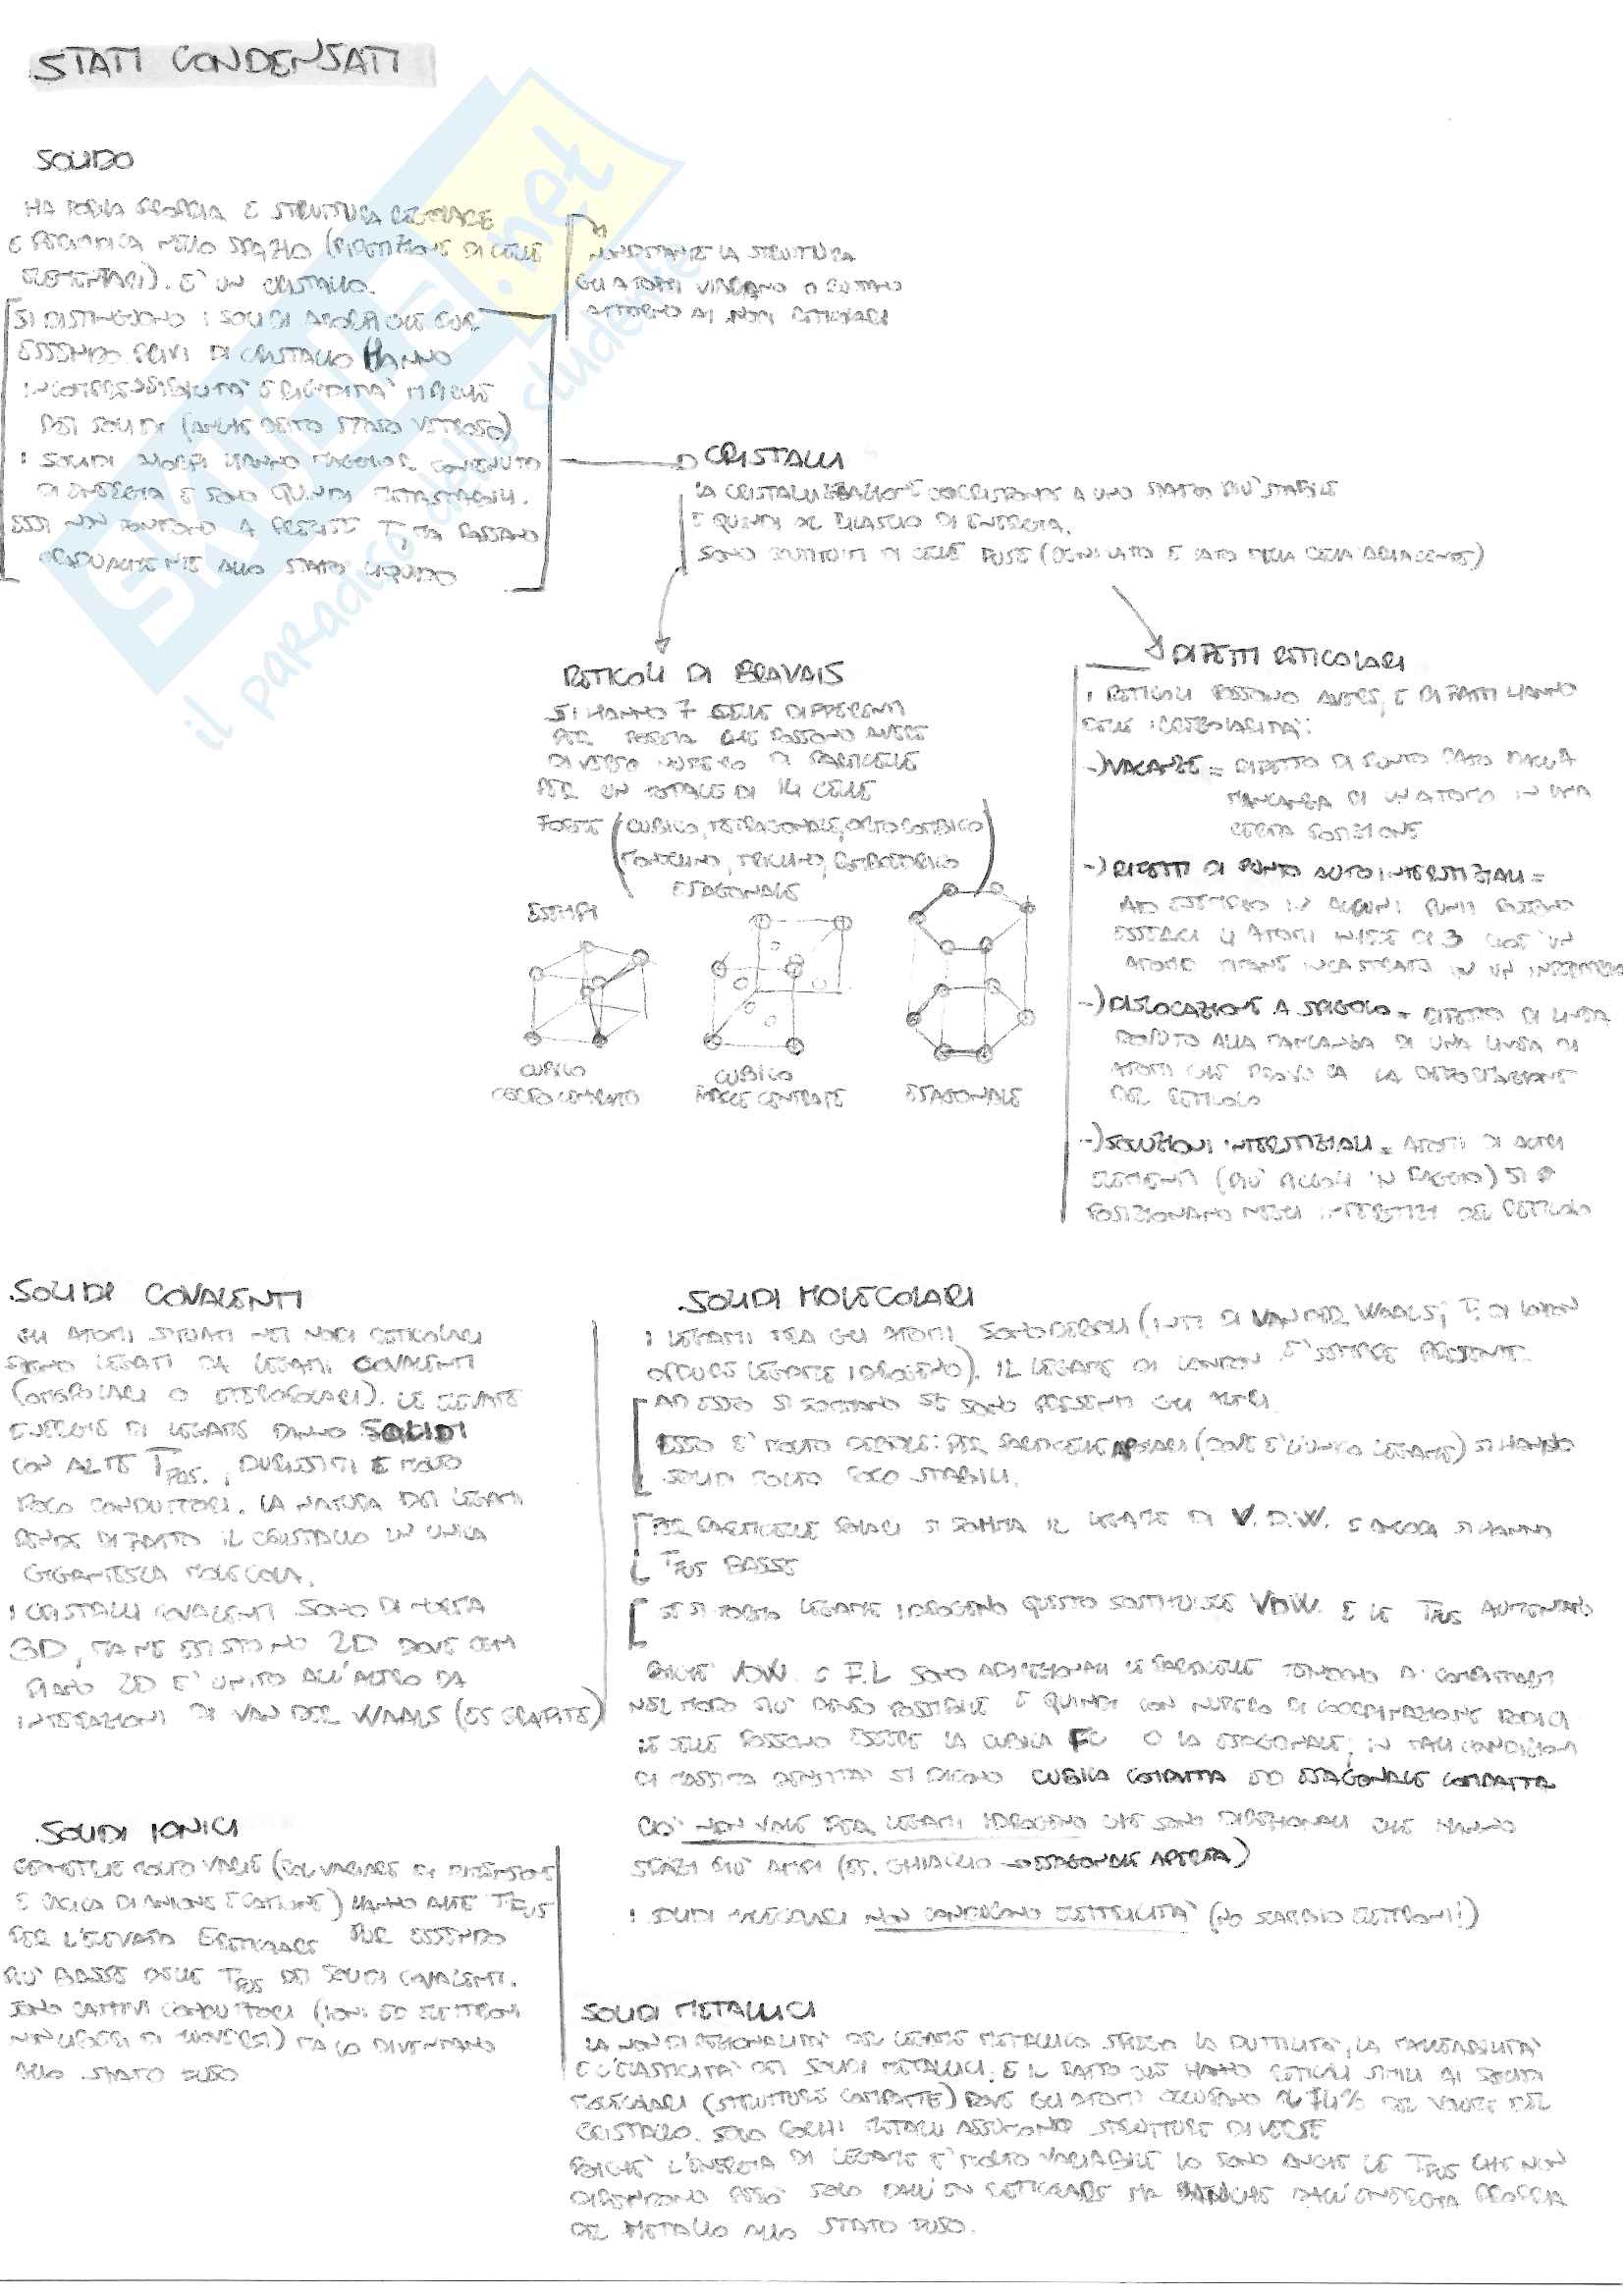 STATI CONDENSATI
SOLIDO
HA FORMA PROPRIA E STRUTTURA REGOLARE
E PERIODICA NELLO SPAZIO (RIPETIZIONE DI CELLE
ELEMENTARI). E' UN CRISTALLO.
NONOSTANTE LA STRUTTURA
GLI ATOMI VIBRANO O RUOTANO
ATTORNO AI NODI RETICOLARI
SI DISTINGUONO I SOLIDI AMORFI CHE PUR
ESSENDO PRIVI DI CRISTALLO HANNO
INCOMPRESSIBILITA' E RIGIDITA' TIPICHE
DEI SOLIDI (ANCHE DETTO STATO VETROSO)
I SOLIDI AMORFI HANNO MAGGIOR CONTENUTO
DI ENERGIA E SONO QUINDI METASTABILI.
ESSI NON FONDONO A PRECISE T, MA PASSANO
GRADUALMENTE ALLO STATO LIQUIDO
CRISTALLI
LA CRISTALLIZZAZIONE CORRISPONDE A UNO STATO PIU' STABILE
E QUINDI AL RILASCIO DI ENERGIA.
SONO COSTITUITI DI CELLE FUSE (OGNI LATO E' LATO DELLA CELLA ADIACENTE)
RETICOLI DI BRAVAIS
SI HANNO 7 CELLE DIFFERENTI
PER FORMA CHE POSSONO AVERE
DIVERSO NUMERO DI PARTICELLE
PER UN TOTALE DI 14 CELLE
FORME (CUBICO, TETRAGONALE, ORTOROMBICO
MONOCLINO, TRICLINO, ROMBOEDRICO
ESAGONALE)
ESEMPI
CUBICO
CORPO CENTRATO
CUBICO
FACCE CENTRATE
ESAGONALE
DIFETTI RETICOLARI
I RETICOLI POSSONO AVERE, E DI FATTI HANNO
DELLE IRREGOLARITA':
-) VACANZE = DIFETTO DI PUNTO DATO DALLA
MANCANZA DI UN ATOMO IN UNA
CERTA POSIZIONE
-) DIFETTI DI PUNTO AUTOINTERSTIZIALI =
AD ESEMPIO IN ALCUNI PUNTI POSSONO
ESSERCI 4 ATOMI INVECE DI 3 CIOE' UN
ATOMO RIMANE INCASTRATO IN UN INTERSTIZIO
-) DISLOCAZIONE A SPIGOLO = DIFETTO DI LINEA
DOVUTO ALLA MANCANZA DI UNA LINEA DI
ATOMI CHE PROVOCA LA DEFORMAZIONE
DEL RETICOLO
-) SOLUZIONI INTERSTIZIALI = ATOMI DI ALTRI
ELEMENTI (PIU' PICCOLI IN RAGGIO) SI
POSIZIONANO NEGLI INTERSTIZI DEL RETICOLO
.SOLIDI COVALENTI
GLI ATOMI SITUATI NEI NODI RETICOLARI
SONO LEGATI DA LEGAMI COVALENTI
(OMEOPOLARI O ETEROPOLARI). LE ELEVATE
ENERGIE DI LEGAME DANNO SOLIDI
CON ALTE TFUS., DURISSIMI E MOLTO
POCO CONDUTTORI. LA NATURA DEI LEGAMI
RENDE DI FATTO IL CRISTALLO UN UNICA
GIGANTESCA MOLECOLA.
I CRISTALLI COVALENTI SONO DI NORMA
3D, MA NE ESISTONO 2D DOVE OGNI
PIANO 2D E' UNITO ALL'ALTRO DA
INTERAZIONI DI VAN DER WAALS (ES GRAFITE)
.SOLIDI IONICI
GEOMETRIE MOLTO VARIE (COL VARIARE DI DIMENSIONE
E CARICA DI ANIONE E CATIONE) HANNO ALTE TFUS
PER L'ELEVATO ERETICOLARE PUR ESSENDO
PIU' BASSE DELLE TFUS DEI SOLIDI COVALENTI.
SONO CATTIVI CONDUTTORI (IONI ED ELETTRONI
NON LIBERI DI MUOVERSI) MA LO DIVENTANO
ALLO STATO FUSO
.SOLIDI MOLECOLARI
I LEGAMI TRA GLI ATOMI SONO DEBOLI (INT. DI VAN DER WAALS, F. DI LONDON
OPPURE LEGAME IDROGENO). IL LEGAME DI LONDON E' SEMPRE PRESENTE.
AD ESSO SI SOMMANO SE SONO PRESENTI GLI ALTRI.
ESSO E' MOLTO DEBOLE: PER PARTICELLE APOLARI (DOVE E' L'UNICO LEGAME) SI HANNO
SOLIDI MOLTO POCO STABILI.
PER PARTICELLE POLARI SI SOMMA IL LEGAME DI V.D.W. E ANCORA SI HANNO
TFUS BASSE
SE SI FORMA LEGAME IDROGENO QUESTO SOSTITUISCE VDW. E LE TFUS AUMENTANO
POICHE' VDW. E F.L SONO ADIREZIONALI LE PARTICELLE TENDONO A COMPATTARSI
NEL MODO PIU' DENSO POSSIBILE E QUINDI CON NUMERO DI COORDINAZIONE DODICI
LE CELLE POSSONO ESSERE LA CUBICA FC O LA ESAGONALE; IN TALI CONDIZIONI
DI MASSIMA DENSITA' SI DICONO CUBICA COMPATTA ED ESAGONALE COMPATTA
CIO' NON VALE PER LEGAMI IDROGENO CHE SONO DIREZIONALI CHE HANNO
SPAZI PIU' AMPI (ES. GHIACCIO → ESAGONALE APERTA)
I SOLIDI MOLECOLARI NON CONDUCONO ELETTRICITA' (NO SCAMBIO ELETTRONI!)
SOLIDI METALLICI
LA NON DIREZIONALITA' DEL LEGAME METALLICO SPIEGA LA DUTTILITA', LA MALLEABILITA'
E L'ELASTICITA' DEI SOLIDI METALLICI, E IL FATTO CHE HANNO RETICOLI SIMILI AI SOLIDI
MOLECOLARI (STRUTTURE COMPATTE) DOVE GLI ATOMI OCCUPANO IL 74% DEL VOLUME DEL
CRISTALLO. SOLO POCHI METALLI ASSUMONO STRUTTURE DIVERSE
POICHE' L'ENERGIA DI LEGAME E' MOLTO VARIABILE LO SONO ANCHE LE TFUS CHE NON
DIPENDONO PERO' SOLO DALL'EN RETICOLARE MA ANCHE DALL'ENERGIA PROPRIA
DEL METALLO ALLO STATO FUSO.
SKUOLA.net
il paradiso dello studente